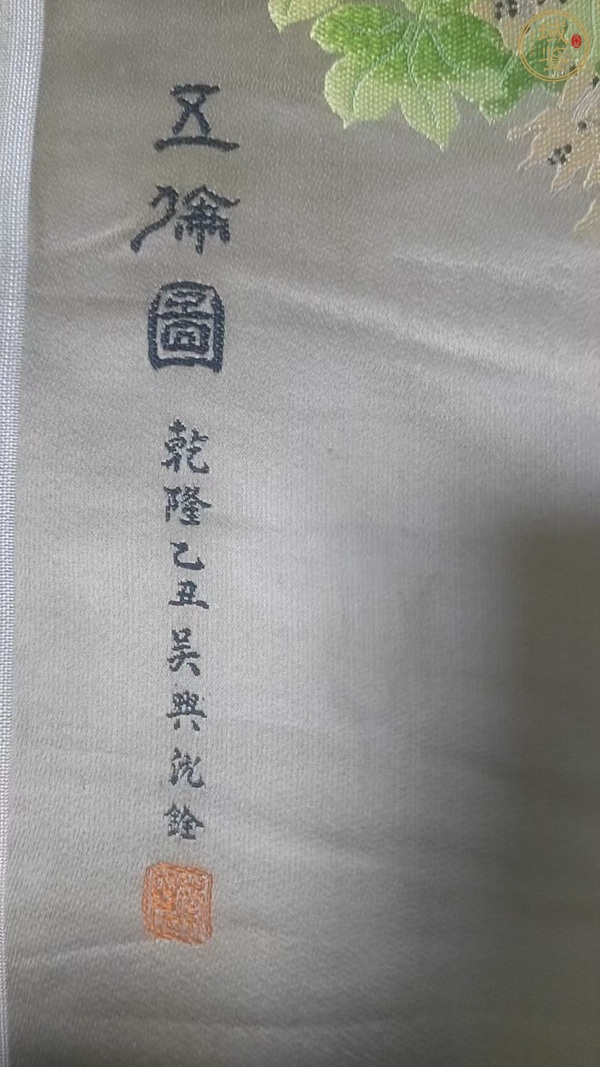 五倫圖
乾隆乙丑吴興沈銓